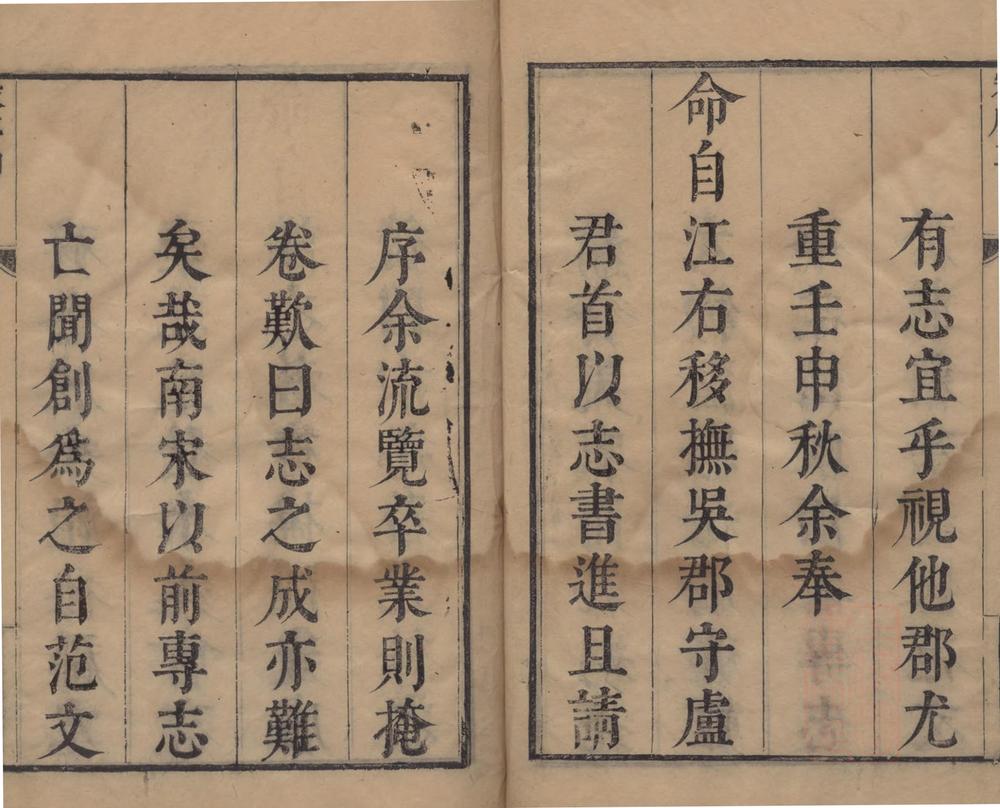 有志宜乎視他郡尤
重壬申秋余奉
命自江右移撫吳郡守盧
君首以志書進且請
序余流覽卒業則掩
卷歎曰志之成亦難
矣哉南宋以前專志
亡聞創爲之自范文